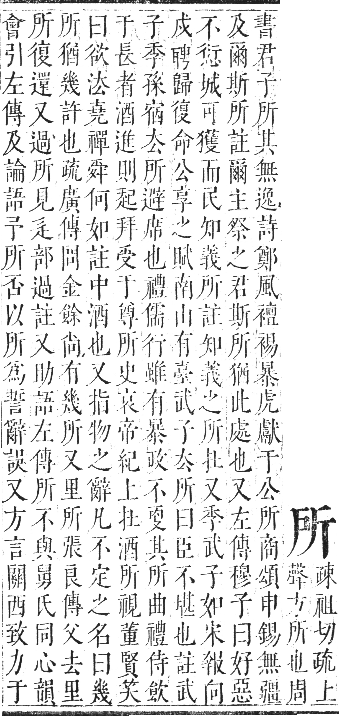 所
疎祖切疏上
聲方所也周
書君子所其無逸詩鄭風襢裼暴虎獻于公所商頌申錫無疆
及爾斯所註爾主祭之君斯所猶此處也又左傳穆子曰好惡
不愆城可獲而民知義所註知義之所扗又季武子如宋報向
戍聘歸復命公享之賦南山有臺武子厺所曰臣不堪也註武
子季孫宿厺所避席也禮儒行雖有暴政不更其所曲禮侍飲
于長者酒進則起拜受于尊所史哀帝紀上扗酒所視董賢笑
曰欲法堯禪舜何如註中酒也又指物之辭凡不定之名曰幾
所猶幾許也疏廣傳問金餘尙有幾所又里所張良傳父去里
所復還又過所見辵部過註又助語左傳所不與舅氏同心韻
會引左傳及論語予所否以所爲誓辭誤又方言關西致力于